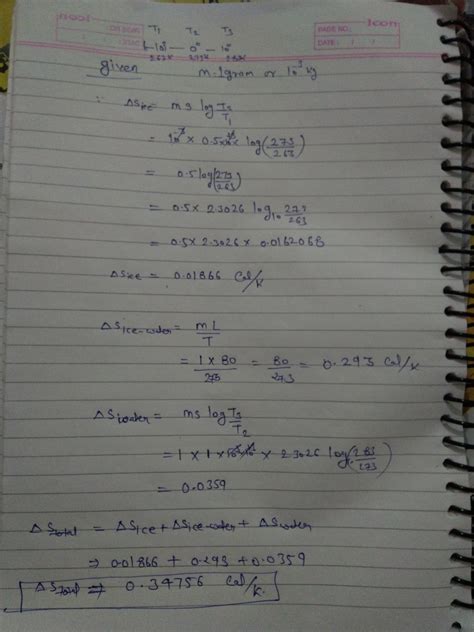 Icon
PAGE NO.:
DATE: / /
T1 T2 T3
-10° — 0° — 10°
263K 273K 283K
given m=1gram or 10^-3 kg
∵ ΔSice = ms log T2/T1
= 10^-3 × 0.5×10^3 × log(273/263)
= 0.5 log(273/263)
= 0.5 × 2.3026 log10 273/263
= 0.5 × 2.3026 × 0.0162068
ΔSice = 0.01866 Cal/K
ΔSice-water = mL/T
= 1 × 80/273 = 80/273 = 0.293 Cal/K
ΔSwater = ms log T3/T2
= 1 × 1 × 2.3026 log(283/273)
= 0.0359
ΔStotal = ΔSice + ΔSice-water + ΔSwater
⇒ 0.01866 + 0.293 + 0.0359
ΔStotal ⇒ 0.34756 Cal/K.